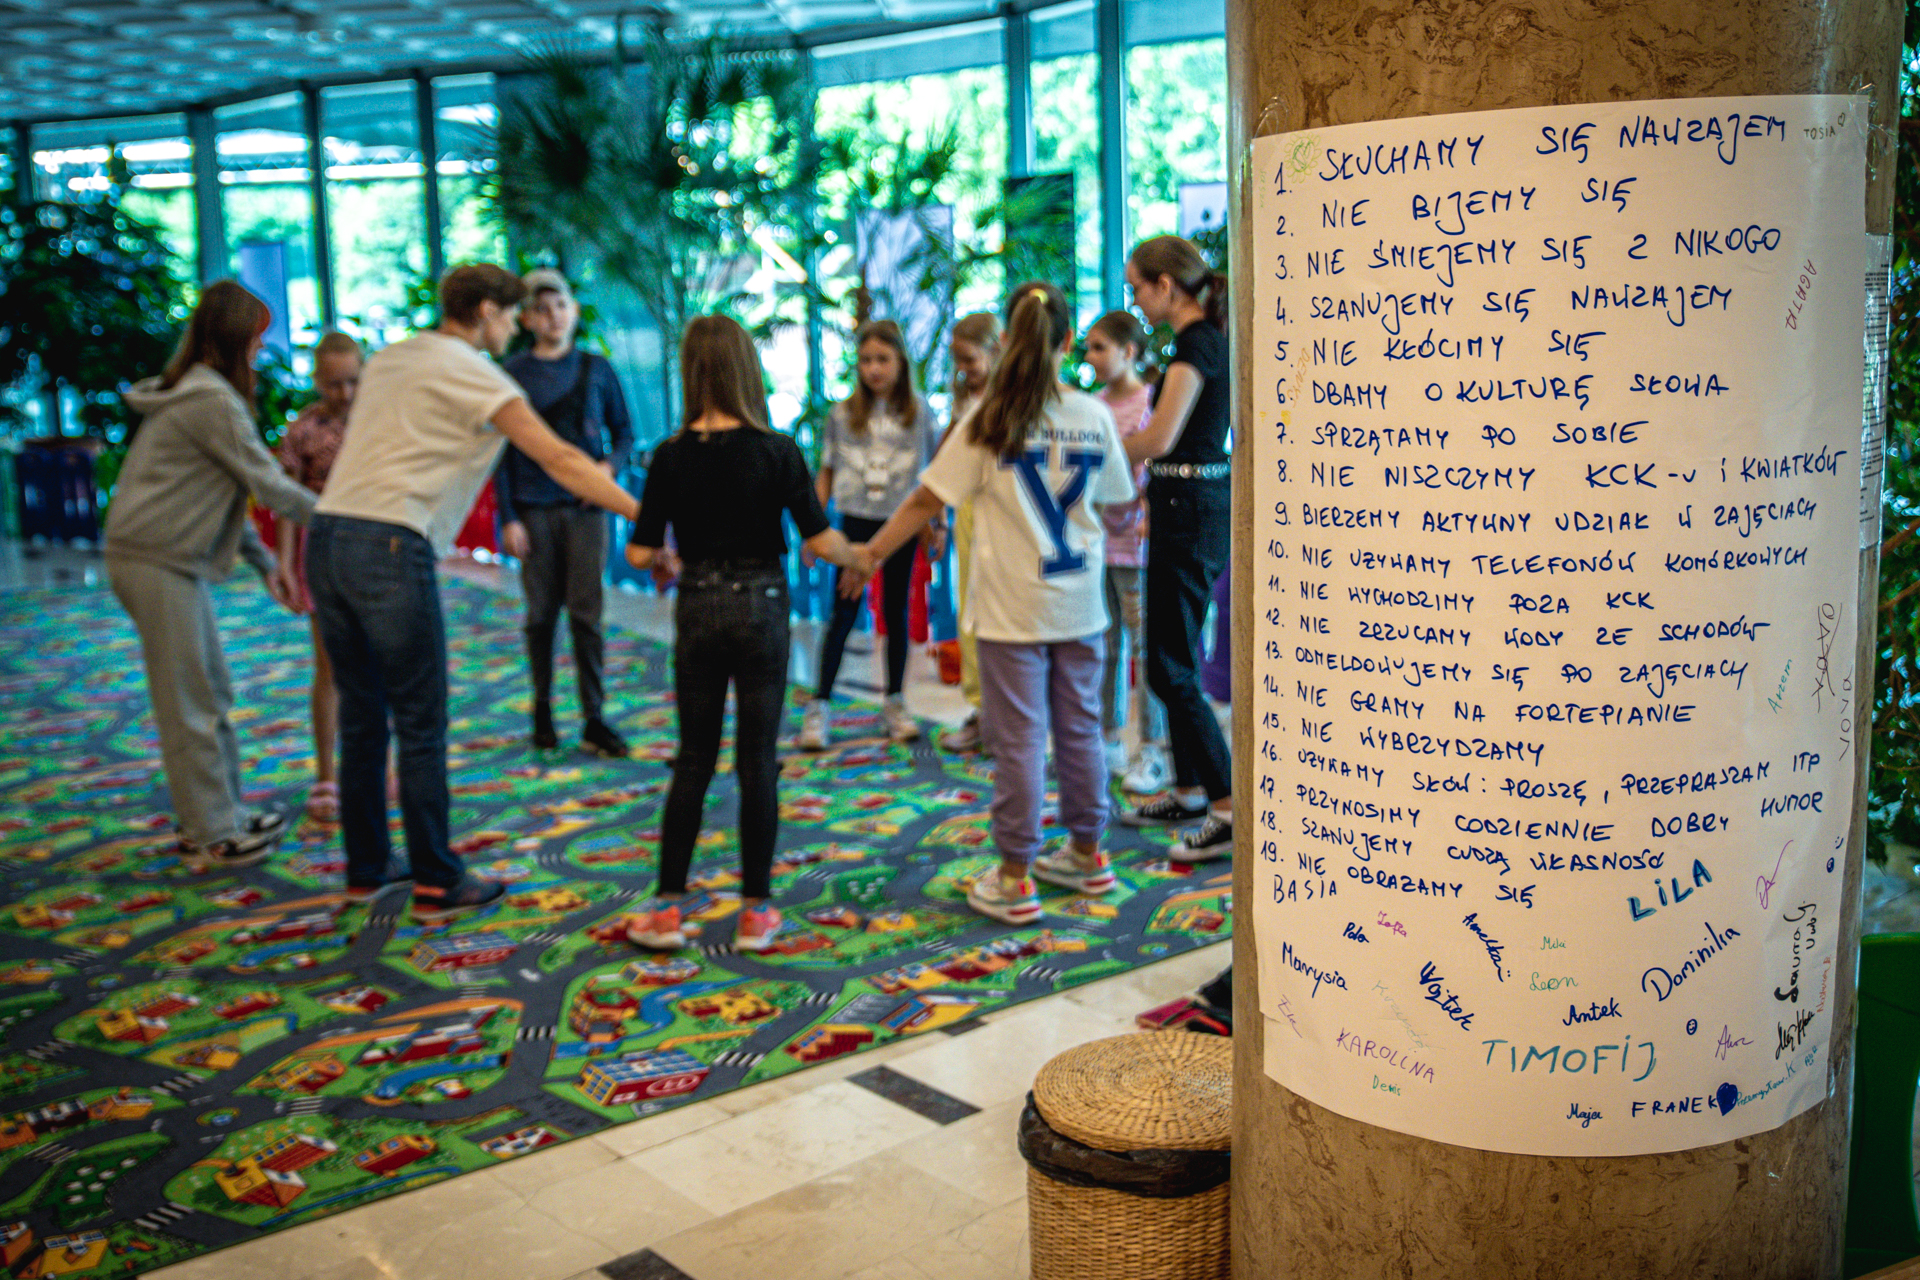 1. SŁUCHAMY SIĘ NAWZAJEM
TOSIA
2. NIE BIJEMY SIĘ
3. NIE ŚMIEJEMY SIĘ Z NIKOGO
4. SZANUJEMY SIĘ NAWZAJEM
AGATA
5. NIE KŁÓCIMY SIĘ
6. DBAMY O KULTURĘ SŁOWA
7. SPRZĄTAMY PO SOBIE
8. NIE NISZCZYMY KCK-u i KWIATKÓW
9. BIERZEMY AKTYWNY UDZIAŁ W ZAJĘCIACH
10. NIE UŻYWAMY TELEFONÓW KOMÓRKOWYCH
11. NIE WYCHODZIMY POZA KCK
12. NIE ZRZUCAMY WODY ZE SCHODÓW
13. ODMELDOWUJEMY SIĘ PO ZAJĘCIACH
Arzem
VOVA
14. NIE GRAMY NA FORTEPIANIE
15. NIE WYBRZYDZAMY
16. UŻYWAMY SŁÓW: PROSZĘ, PRZEPRASZAM ITP
17. PRZYNOSIMY CODZIENNIE DOBRY HUMOR
18. SZANUJEMY CUDZĄ WŁASNOŚĆ
19. NIE OBRAŻAMY SIĘ
BASIA
LiLA
Pola
Zofia
Amelka
Mila
Marysia
Wojtek
Leon
Antek
Dominika
KAROLINA
TIMOFIJ
Denis
Maja
FRANEK
BULLDOG
Y